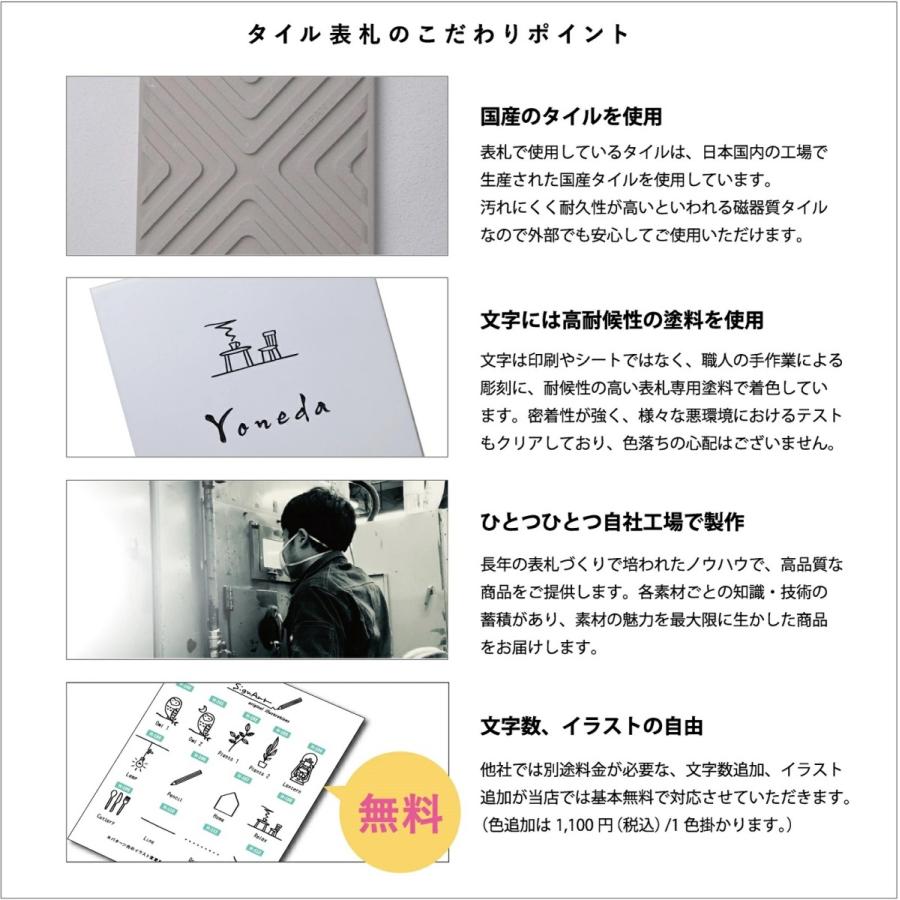 タイル表札のこだわりポイント
国産のタイルを使用
表札で使用しているタイルは、日本国内の工場で
生産された国産タイルを使用しています。
汚れにくく耐久性が高いといわれる磁器質タイル
なので外部でも安心してご使用いただけます。
Yoneda
文字には高耐候性の塗料を使用
文字は印刷やシートではなく、職人の手作業による
彫刻に、耐候性の高い表札専用塗料で着色してい
ます。密着性が強く、様々な悪環境におけるテスト
もクリアしており、色落ちの心配はございません。
ひとつひとつ自社工場で製作
長年の表札づくりで培われたノウハウで、高品質な
商品をご提供します。各素材ごとの知識・技術の
蓄積があり、素材の魅力を最大限に生かした商品
をお届けします。
SignArt
original illustrations
Owl 1
Owl 2
Plants 1
Plants 2
Lantern
Lamp
Pencil
Home
Relax
Cutlery
Line
無料
文字数、イラストの自由
他社では別途料金が必要な、文字数追加、イラスト
追加が当店では基本無料で対応させていただきます。
（色追加は1,100円（税込）/1色掛かります。）